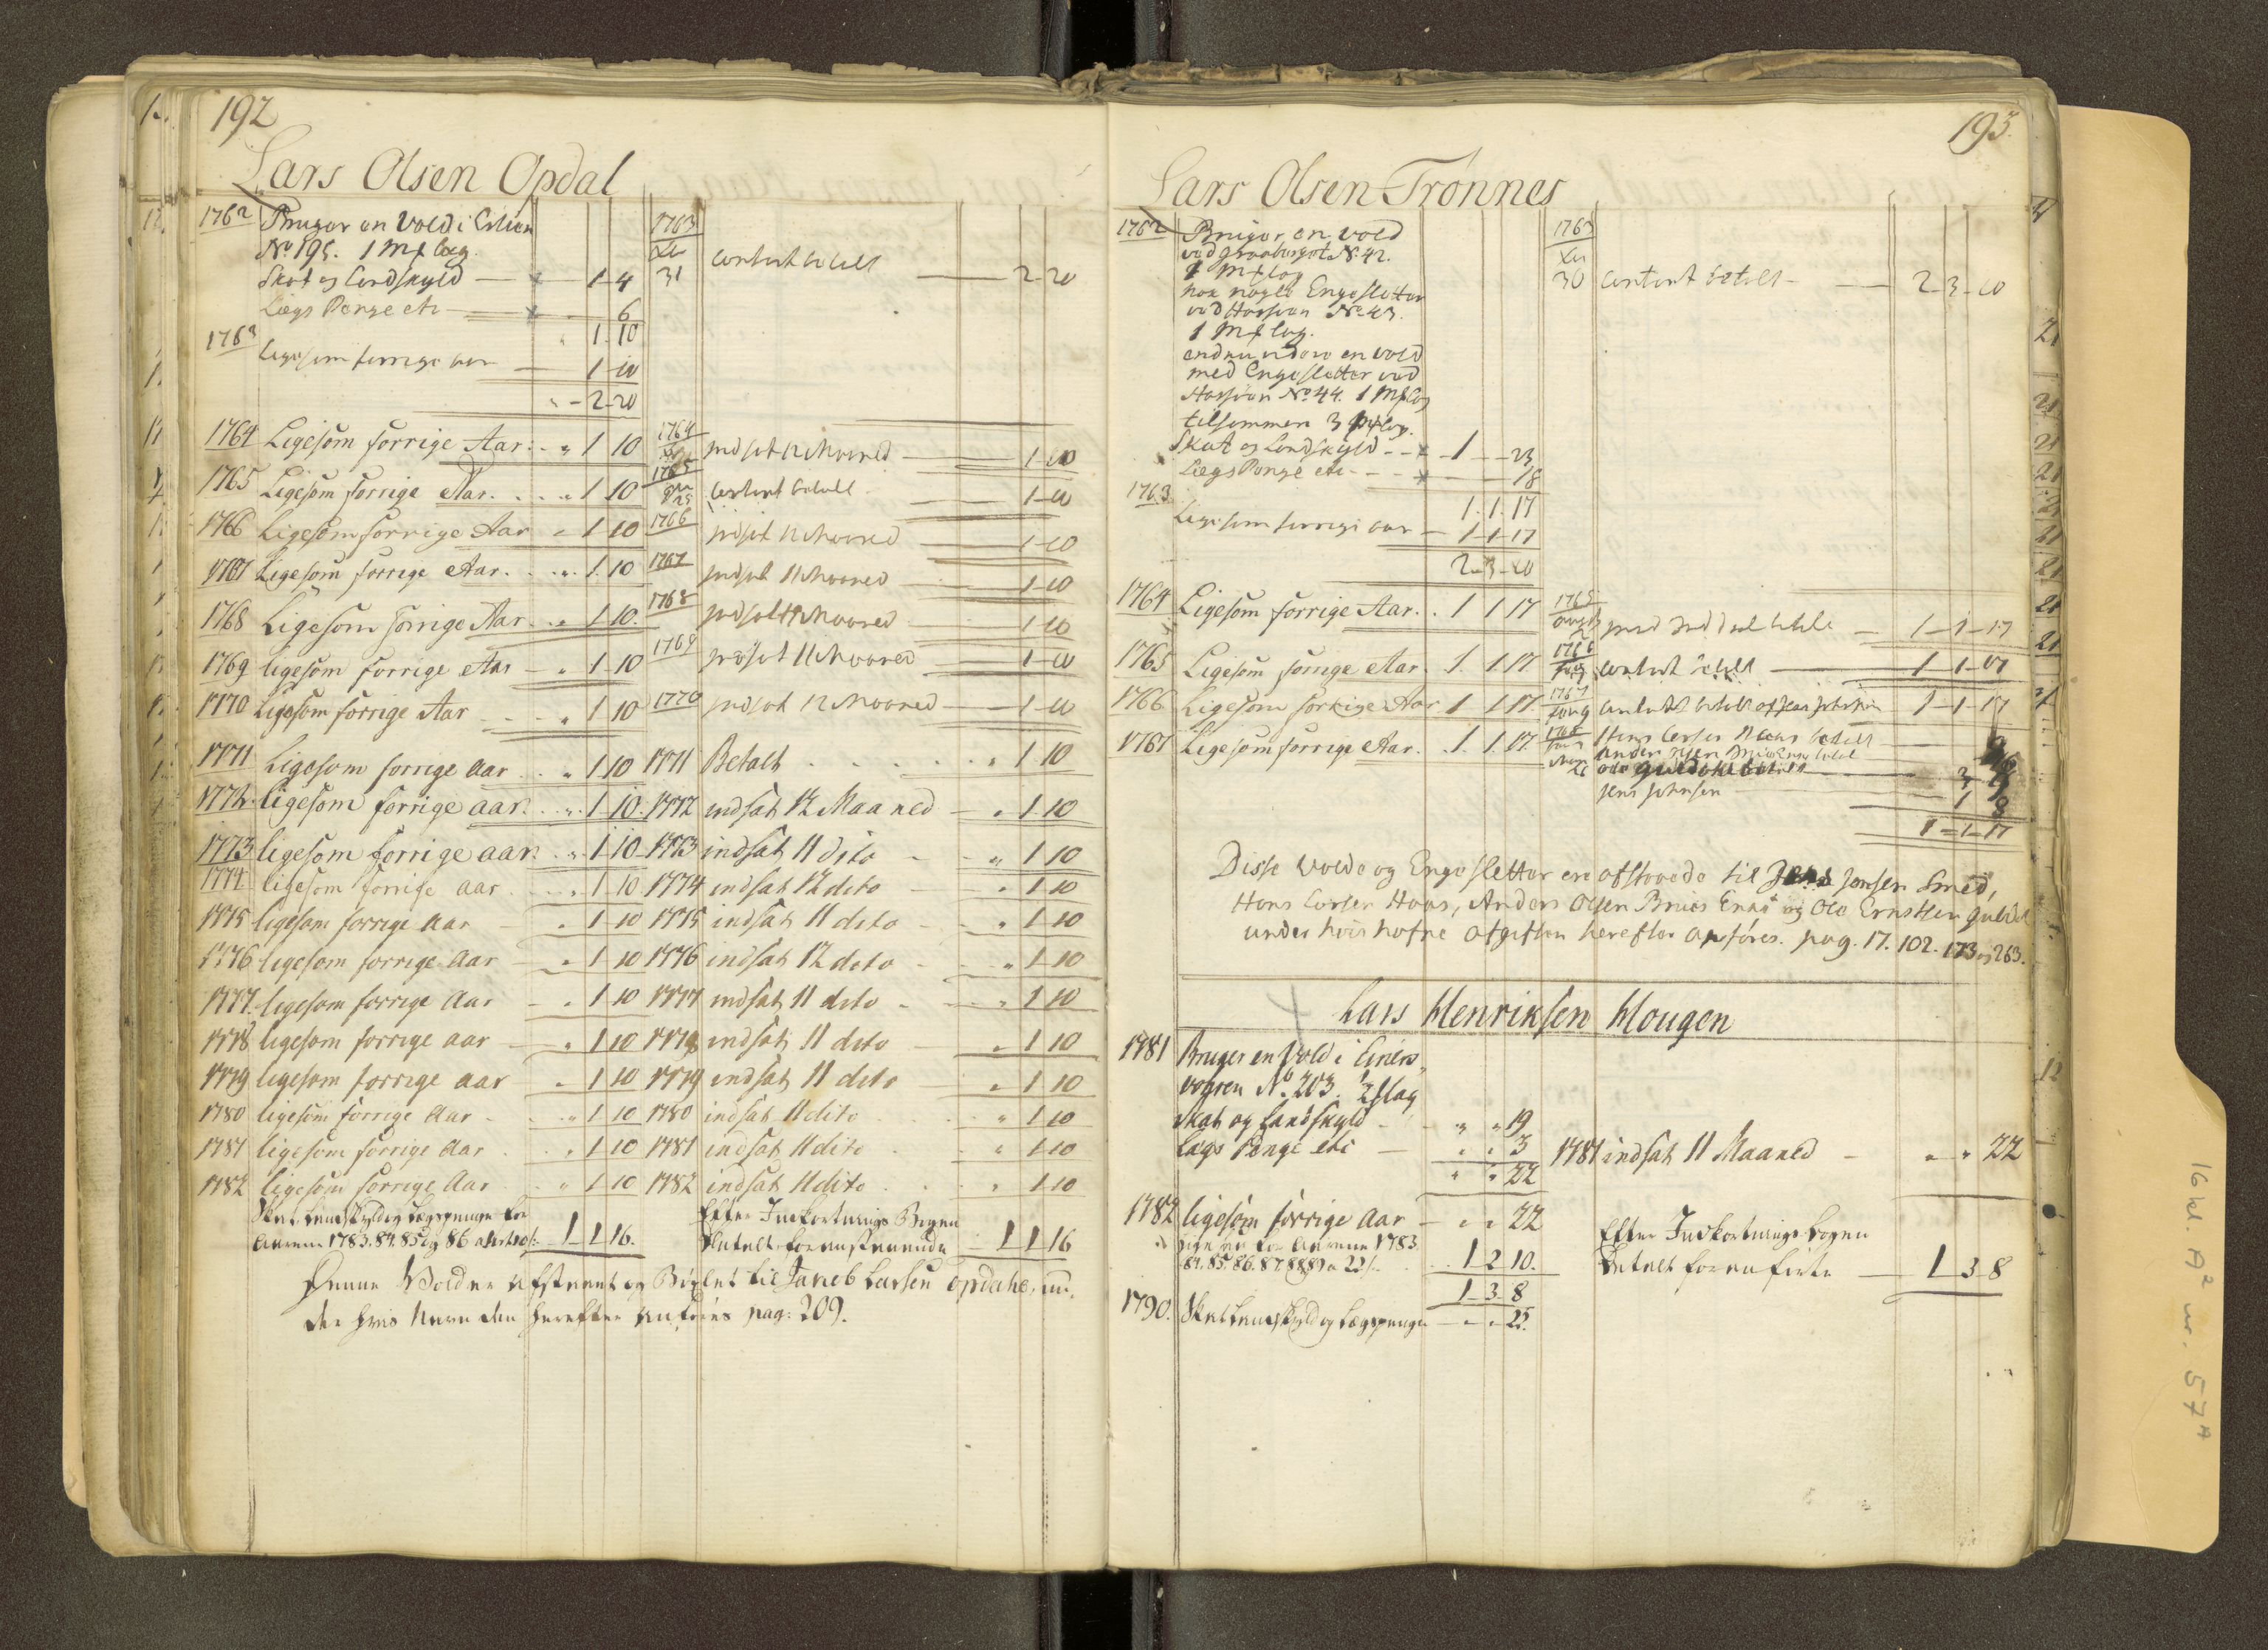 192
Lars Olsen Opdal
1762 Bruger en Vold i
No 195. 1 Mk lag.
Skat og Landskyld 1 - 4
Lægs Penge etc 6
" 1 10
1763 Ligesom forrige aar 1 - 10
" - 2 - 20
1764 Ligesom forrige Aar. " 1 10
1765 Ligesom forrige Aar. " 1 10
1766 Ligesom forrige Aar " 1 10
1767 Ligesom forrige Aar. " 1 10
1768 Ligesom forrige Aar. " 1 10.
1769 ligesom forrige Aar " 1 10
1770 Ligesom forrige Aar " 1 10
1771 Ligesom forrige aar " 1 10
1772 ligesom forrige aar. " 1 10.
1773 ligesom forrige aar. " 1 10
1774 ligesom forrige aar " 1 10
1775 ligesom forrige aar " 1 10
1776 ligesom forrige aar " 1 10
1777. ligesom forrige aar " 1 10
1778 ligesom forrige aar " 1 10
1779 ligesom forrige aar " 1 10
1780 ligesom forrige aar " 1 10
1781 ligesom forrige aar " 1 10
1782 ligesom forrige Aar " 1 10
Skat Landskyld og Lægspenge for
Aarene 1783. 84. 85 og 86 1 1 16.
1763
Xbr
31 contant betalt 2 - 20
1764 indsat 12 Maaned 1 - 10
1765 contant betalt 1 - 10
1766 indsat 12 Maaned 1 - 10
1767 indsat 11 Maaned 1 - 10
1768 indsat Maaned 1 - 10
1769 indsat 11 Maaned 1 - 10
1770 indsat 12 Maaned 1 - 10
1771 Betalt " 1 10
1772 indsat 12 Maaned " 1 10
1773 indsat 11 dito " 1 10
1774 indsat 12 dito " 1 10
1775 indsat 11 dito " 1 10
1776 indsat 12 dito " 1 10
1777 indsat 11 dito " 1 10
1778 indsat 11 dito " 1 10
1779 indsat 11 dito " 1 10
1780 indsat 11 dito " 1 10
1781 indsat 11 dito " 1 10
1782 indsat 11 dito " 1 10
Efter Indkortnings Bogen
betalt foranstaaende 1 1 16
Denne Vold er afstaaet og Bøxlet til Jacob Larsen Opdahl, un,
der hvis Navn den herefter anføres pag: 209.
193.
Lars Olsen Trønnes
1762 Bruger en vold
ved No 42.
1 Mk lag
nok nogle Engesletter
ved Hasjøen No 43.
1 Mk lag.
endnu en vold
med Engesletter ved
Hasjøen No 44. 1 Mk lag
tilsammen 3 Mk lag.
Skat og Landskyld 1 - - 23
Lægs Penge etc 18
1. 1. 17
1763 Ligesom forrige aar 1 - 1 - 17
2 - 3 - 10
1764 Ligesom forrige Aar. 1 1 17
1765 Ligesom forrige Aar. 1. 1 17
1766 Ligesom forrige Aar 1 1 17
1767 Ligesom forrige Aar. 1. 1. 17.
1763
Xbr
30 contant betalt 2 - 3 - 10
1765 betalt 1 - 1 - 17
1766 contant betalt 1 - 1 - 17
1767 contant betalt af Jens Johnsen 1 - 1 - 17
1768 Hans Larsen Haas betalt
Anders Olsen betalt
Ole Guldahl betalt
Jens Johnsen
1 - 1 - 17
Disse Volde og Engesletter ere afstaaede til Jens Jonsen Smed,
Hans Larsen Haas, Anders Olsen og Ole Ernstsen
under hvis nafne afgiften herefter anføres. pag. 17. 102. 173 og 263.
Lars Henriksen Hougen
1781 Bruger en Vold i Einers
vohren No. 203. 1/2 lag
Skat og Landskyld " " 19
Lægs Penge etc " " 3
" " 22
1782 ligesom forrige Aar " " 22
for Aarene 1783
84. 85. 86. 87 88 89 a 22 1 2 10.
1 3 8
1790. Skat Landskyld og Lægspenge " " 22.
1781 indsat 11 Maaned " " 22
Efter Indkortnings Bogen
betalt foranførte 1 3 8
16 kl. A² nr. 57ᴬ